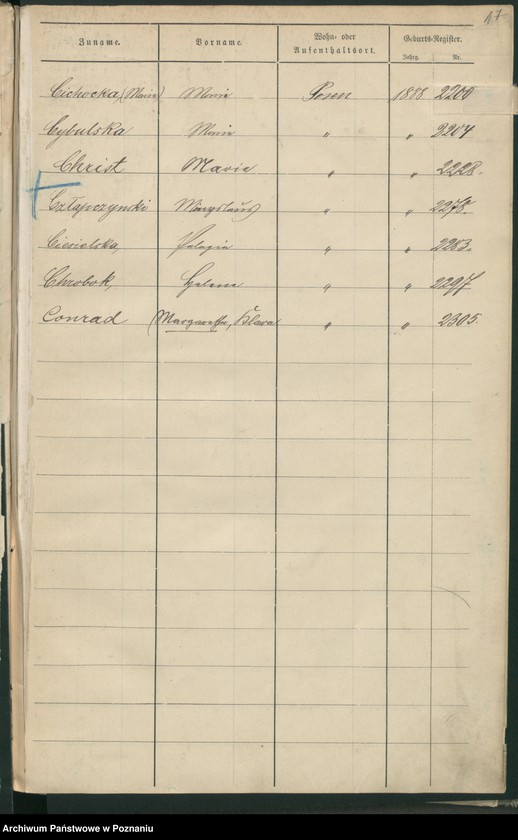 47
Zuname. Vorname. Wohn- oder Aufenthaltsort. Geburts-Register.
Jahrg. Nr.
Cichocka (Marie) Marie Posen 1888 2200
Cybulska Marie " " 2204
Christ Marie " " 2228.
Człapczynski " " 2278.
Ciesielska, Pelagia " " 2283.
Chrobok, Helene " " 2297
Conrad (Margarethe, Klara " " 2305.
Archiwum Państwowe w Poznaniu